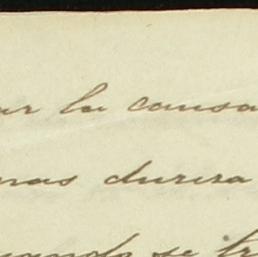 ar la causa
mas durira
uando se tr